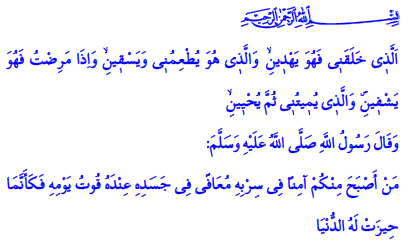 بِسْمِ اللّٰهِ الرَّحْمٰنِ الرَّحِيمِ
اَلَّذِى خَلَقَنِى فَهُوَ يَهْدِينِۙ وَالَّذِى هُوَ يُطْعِمُنِى وَيَسْقِينِۙ وَاِذَا مَرِضْتُ فَهُوَ
يَشْفِينِۖ وَالَّذِى يُمِيتُنِى ثُمَّ يُحْيِينِۙ
وَقَالَ رَسُولُ اللَّهِ صَلَّى اللَّهُ عَلَيْهِ وَسَلَّمَ:
مَنْ أَصْبَحَ مِنْكُمْ آمِنًا فِى سِرْبِهِ مُعَافًى فِى جَسَدِهِ عِنْدَهُ قُوتُ يَوْمِهِ فَكَأَنَّمَا
حِيزَتْ لَهُ الدُّنْيَا